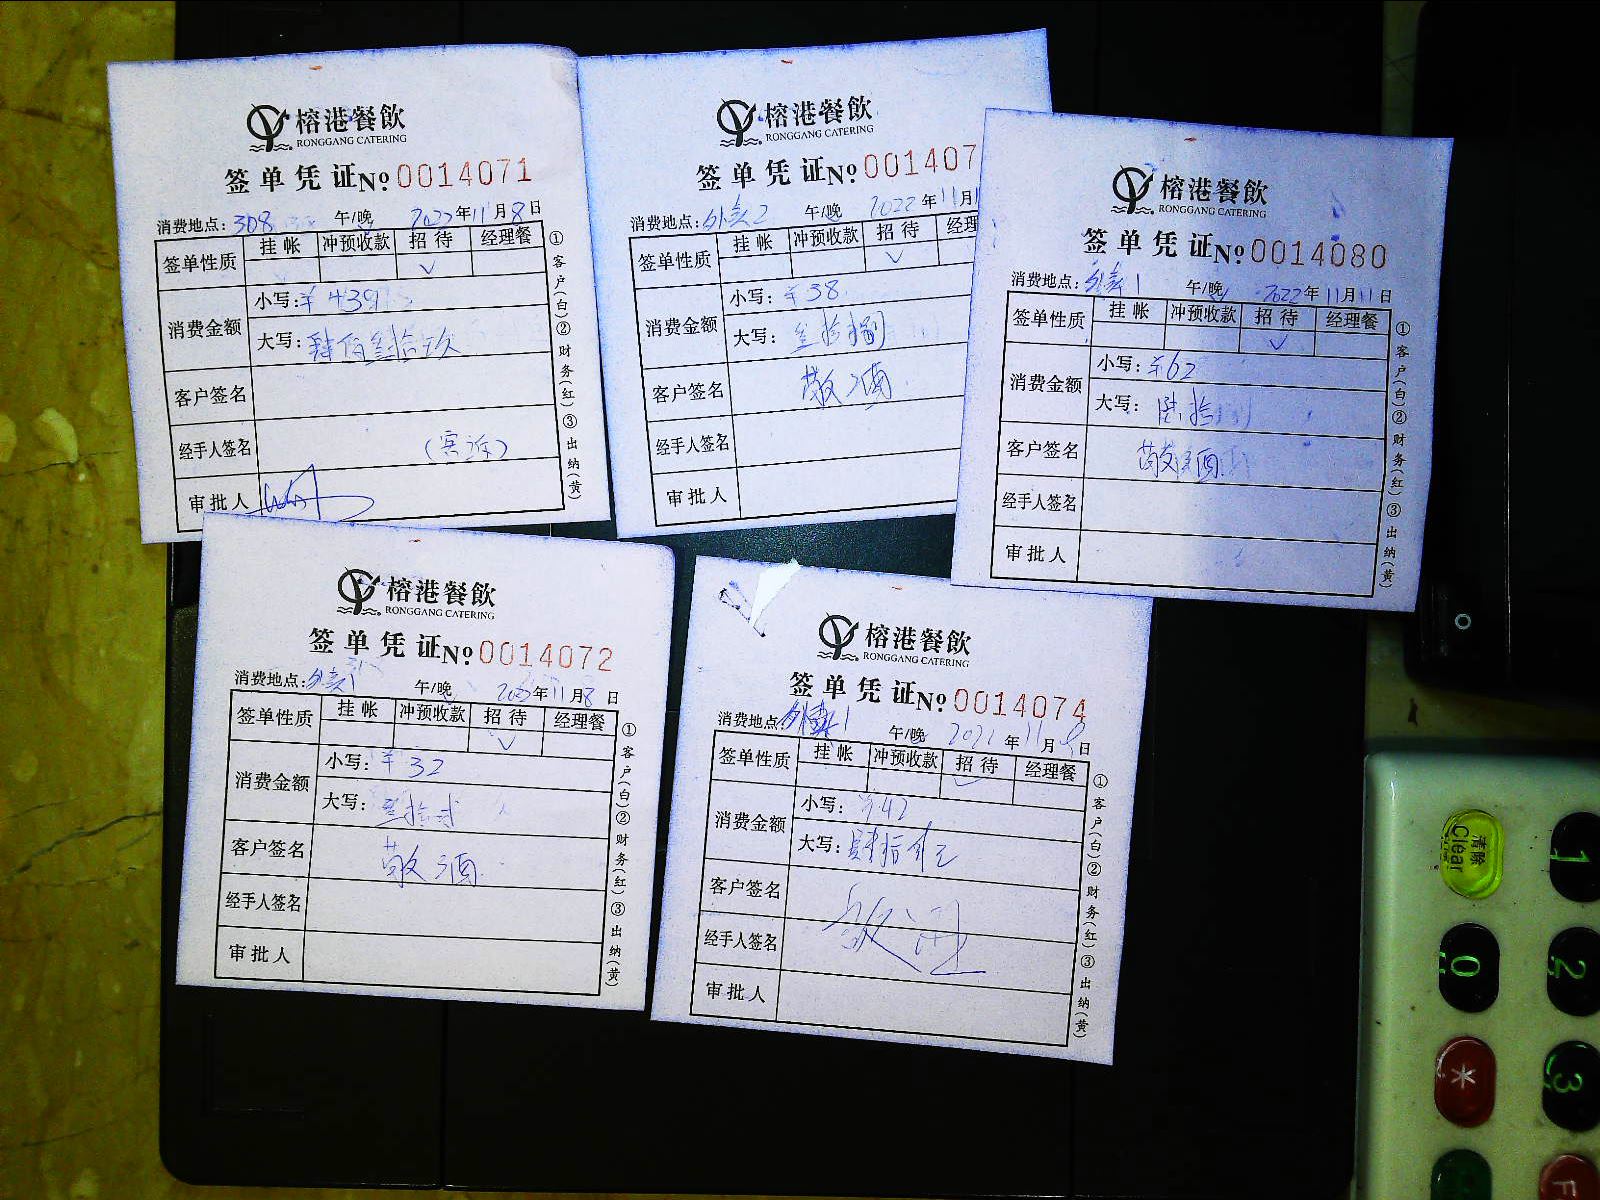 榕港餐飲
RONGGANG CATERING
签单凭证№0014071
消费地点:308 午/晚 2022年11月8日
签单性质 挂帐 冲预收款 招待 经理餐
✓
消费金额 小写:¥439
大写:肆佰叁拾玖
客户签名
经手人签名
审批人
①客户(白)②财务(红)③出纳(黄)
榕港餐飲
RONGGANG CATERING
签单凭证№001407
消费地点:外卖2 午/晚 2022年11月1
签单性质 挂帐 冲预收款 招待 经理
✓
消费金额 小写:¥38
大写:叁拾捌
客户签名 敬酒
经手人签名
审批人
榕港餐飲
RONGGANG CATERING
签单凭证№0014080
消费地点:外卖1 午/晚 2022年11月11日
签单性质 挂帐 冲预收款 招待 经理餐
✓
消费金额 小写:¥62
大写:陆拾
客户签名 敬酒
经手人签名
审批人
①客户(白)②财务(红)③出纳(黄)
榕港餐飲
RONGGANG CATERING
签单凭证№0014072
消费地点:外卖1 午/晚 年11月8日
签单性质 挂帐 冲预收款 招待 经理餐
✓
消费金额 小写:¥32
大写:叁拾贰
客户签名 敬酒
经手人签名
审批人
①客户(白)②财务(红)③出纳(黄)
榕港餐飲
RONGGANG CATERING
签单凭证№0014074
消费地点:外卖1 午/晚 年11月 日
签单性质 挂帐 冲预收款 招待 经理餐
✓
消费金额 小写:¥42
大写:肆拾
客户签名
经手人签名
审批人
①客户(白)②财务(红)③出纳(黄)
清除
Clear
1
0
2
*
3
F